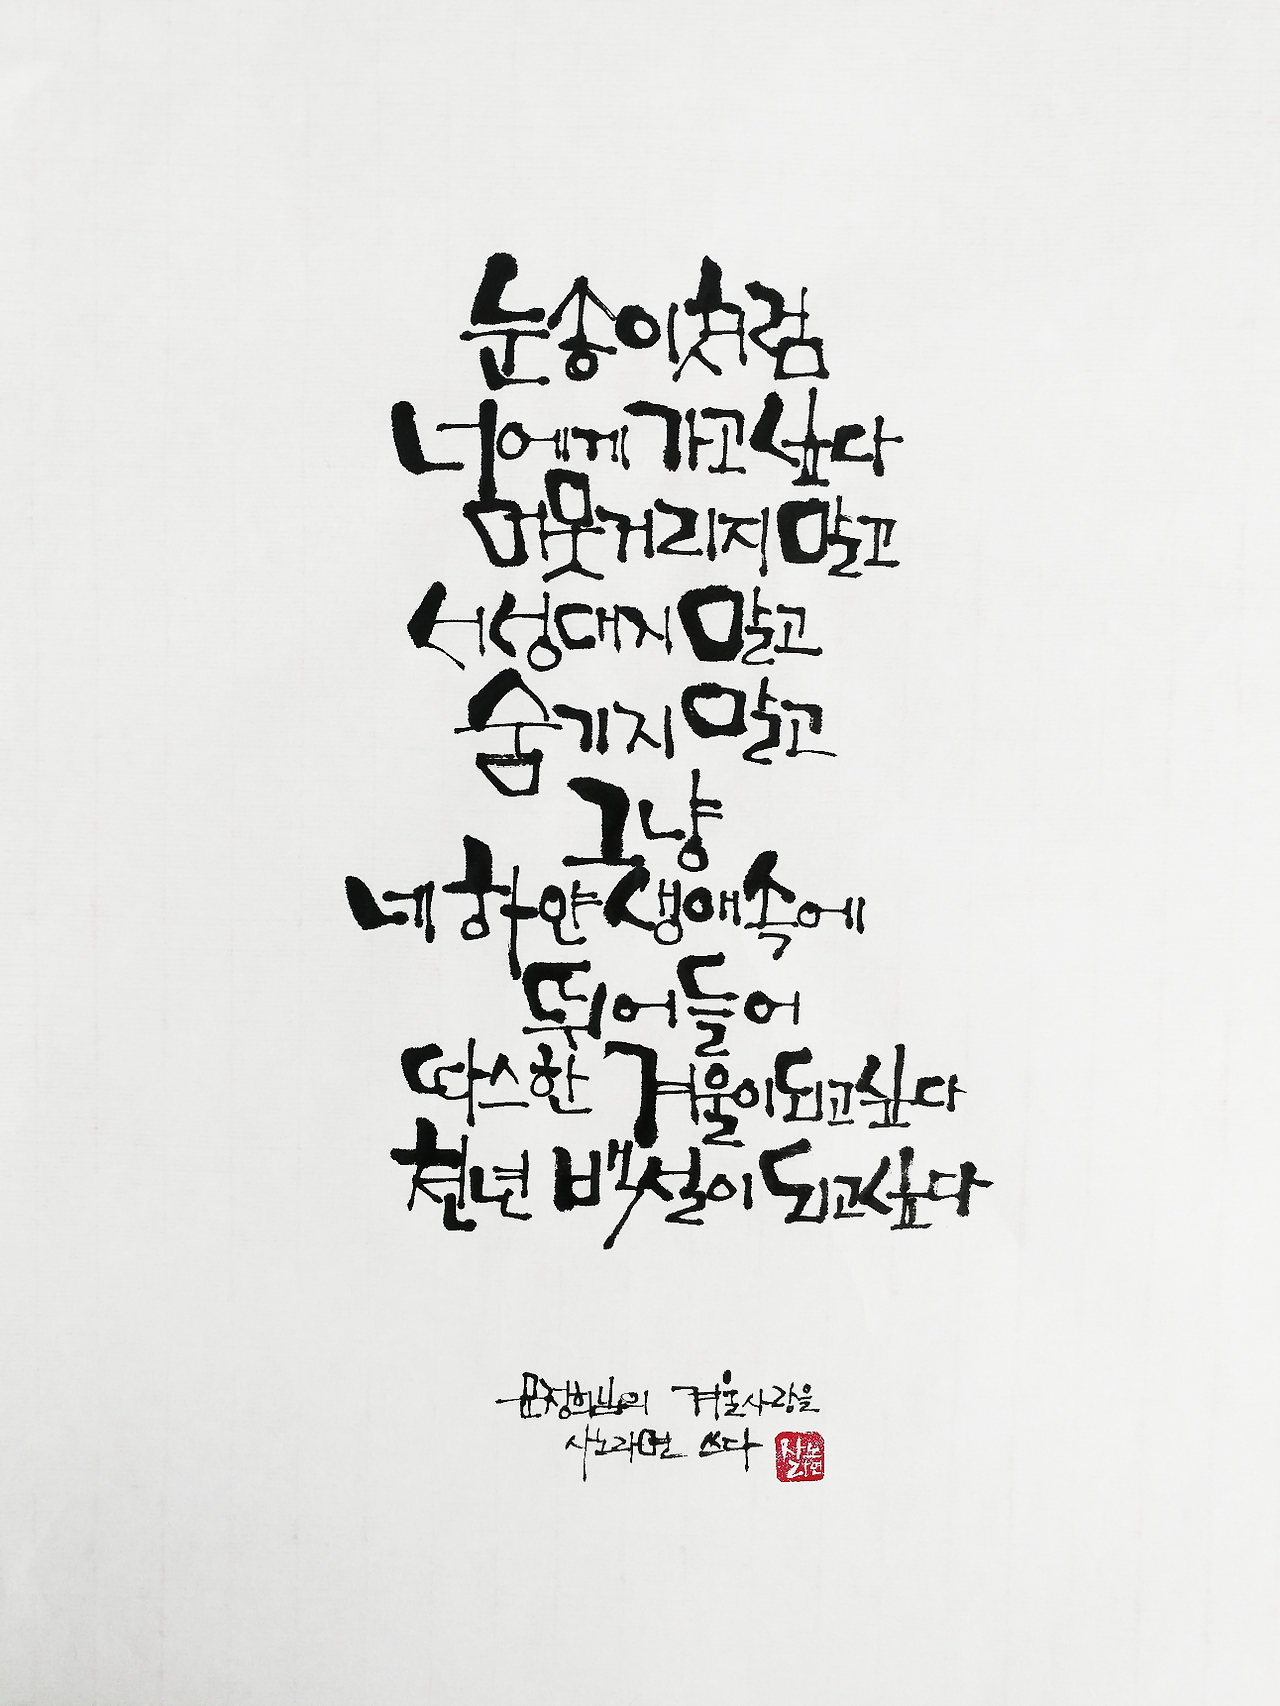 눈송이처럼
너에게 가고싶다
머뭇거리지 말고
서성대지 말고
숨기지 말고
그냥
네 하얀 생애 속에
뛰어들어
따스한 겨울이 되고싶다
천년 백설이 되고싶다
문정희님의 겨울사랑을
사노라면 쓰다
사노라면